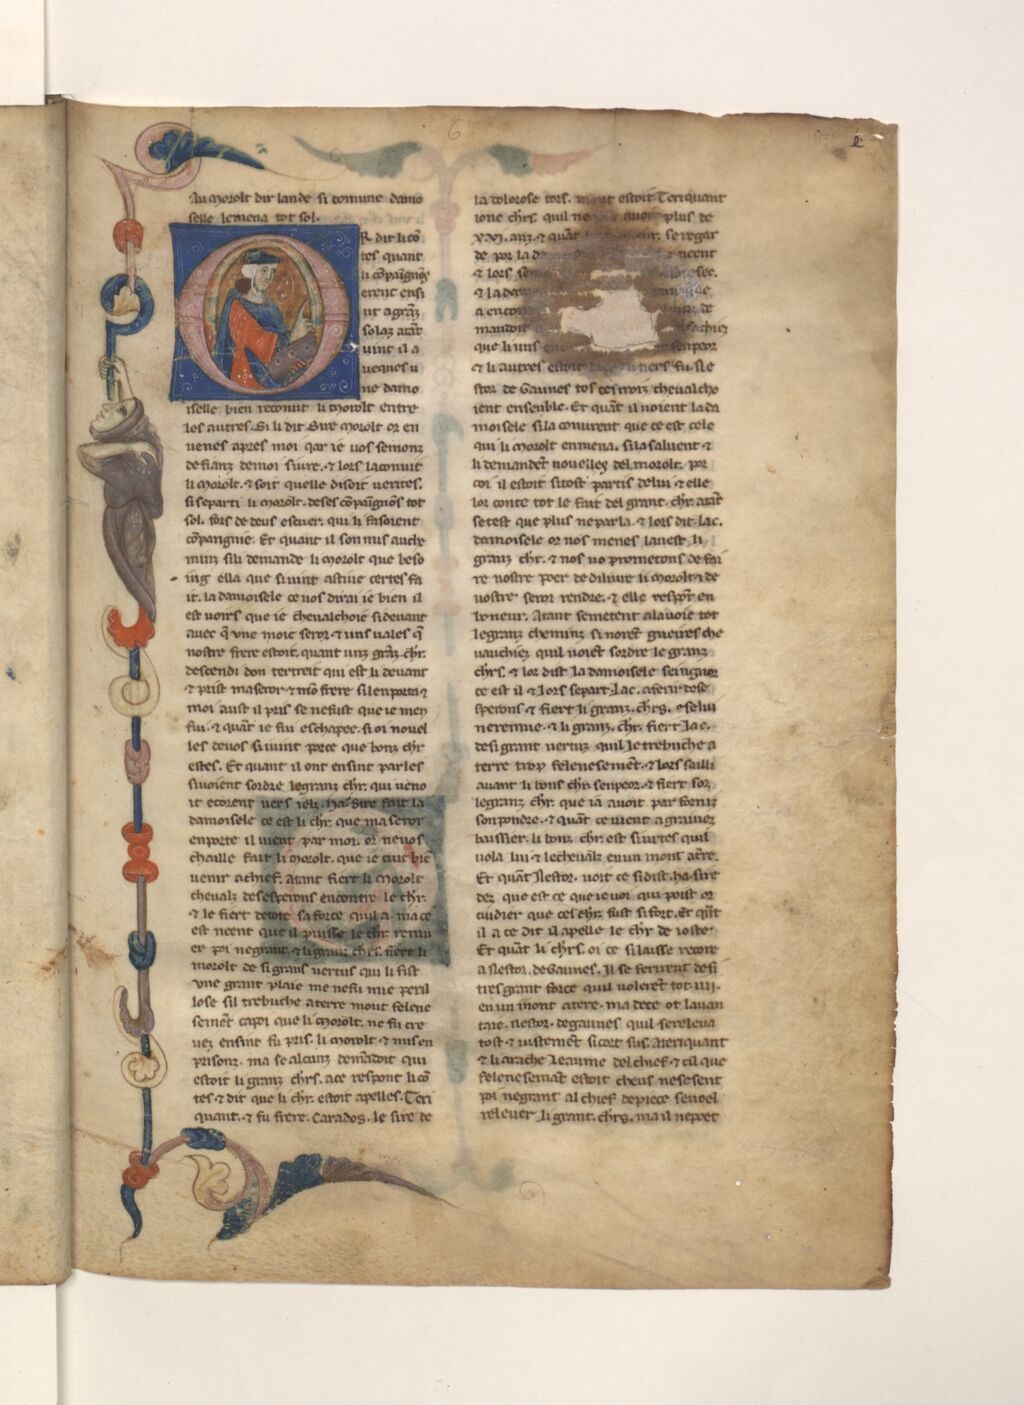 6
2
Au morolt dir lande si comune damo
selle lemena tot sol.
R dit li cō
tes quant
li cōpaīgnōs
erent ensi
nt a grāz
solaz atāt
vint il a
ueques u
ne damo
iselle bien reconut li morolt entre
les autres. Si li dit Sire morolt or en
uenes apres moi qar ie uos semonz
de fianz demoi suire. ⁊ lors la conuit
li morolt. ⁊ soit quelle disoit uerites.
si separti li morolt. de ses cōpaīgnōs tot
sol. fors de deus escuer. qui li fasoient
cōpangnie. Et quant il son mis au che
min sili demande li morolt que beso
ing ella que si uint astiue certes fa
it. la damoisele ce uos dirai ie bien il
est uoirs que ie cheualchoie si deuant
auec q̄ vne moie seror ⁊ uns uales q̄
nostre frere estoit. quant unz grāz. chr.
descendi don tertreit qui est li deuant
⁊ prist ma seror ⁊ mō frere si lenporta ⁊
moi aust il pris se ne fust que ie men
fui. ⁊ quāt ie fui eschapee. si oi nouel
les deuos si uint porce que bonz chr
estes. Et quant il ont ensint parles
si uoient sordre le granz chr. qui ueno
it ecorent uers ielz. ha. Sire fait la
damoisele ce est li chr. que ma seror
enporte il uient par moi. or ne uos
chaille fait li morolt. que ie cuit biē
uenir a chief. atant fiert li morolt
cheualz des esperons encontre le chr.
⁊ le fiert de tote sa force quil a. ma ce
est neent que il puisse le chr remu
er poi ne grant. ⁊ li granz chrs. fiert li
morolt de si grans uertus qui li fist
vne grant plaie me ne fu mie peril
lose si l trebuche a terre mout felene
semēt capoi que li morolt. ne fu cre
uez ensint fu pris. li morolt ⁊ mis en
prisonz. ma se alcunz demādoit qui
estoit li granz chrs. a ce respont li cō
tes ⁊ dit que li chr. estoit apelles. Teri
quant. ⁊ fu frere. Carados. le sire de
la dolorose tors. mout estoit Teriquant
ione chrs. quil ne auoit plus de
XXVI. anz. ⁊ quāt se regar
de por la neent
⁊ lors sec.
⁊ la da
a encon de
mandoit sachiez
que li uns senpeor
⁊ li autres estoit tiers fu. Ne
stor de Gaunes tos ces troiz cheualcho
ient ensenble. Et quāt il uoient la da
moisele si la conurent que ce est cele
qui li morolt enmena. si la saluent ⁊
li demandēt nouelles del morolt. por
coi il estoit si tost partis de lui ⁊ elle
lor conte tot le fait del grant. chr. atāt
se test que plus ne parla. ⁊ lors dit. lac.
damoisele or nos menes la nest li
granz chr. ⁊ nos uo prometons de fai
re nostre poer de diliure li morolt ⁊ de
uostre seror rendre. ⁊ elle respōt en
boneur. Atant se metent a la uoie tot
le granz cheminz si norēt gueires che
uauchiez quil uoiēt sordre le granz
chrs. ⁊ lor dist la damoisele seingnor
ce est il ⁊ lors se part. lac. a ferir des e
speronz ⁊ fiert li granz. chrs. ⁊ se lui
ne remue. ⁊ li granz. chr. fiert. lac.
de si grant uertuz quil le trebuche a
terre trop felenesemēt. ⁊ lors sailli
auant li bons chr. senpeor. ⁊ fiert sor
le granz chr. que ia auoit par fornir
son pondre. ⁊ quāt ce uient a gūiuer
baissier. li bonz chr. est si urtes quil
uola lui ⁊ le cheualz en un mont a tr̄e.
Et quāt Nestor. uoit ce si dist. ha. sire
dex que est ce que ie uoi qui poist or
cuidier que cest chr. fust si fort. Et quāt
il a ce dit il apelle le chr de ioste.
Et quāt li chrs. oi ce si laisse recore
a Nestor. de Gaunes. Il se ferirent de si
tres grant force quil uolerēt tot .IIII.
en un mont a tere. ma de ce ot lauan
taie. Nestor. degaunes quil se releua
tost ⁊ uistemēt si cort sus. a teriquant
⁊ li arache leaume del chief. ⁊ cil que
felenesemāt estoit cheus ne se sent
poi ne grant al chief de piece se uoel
releuer. li grant. chrs. ma il ne poet